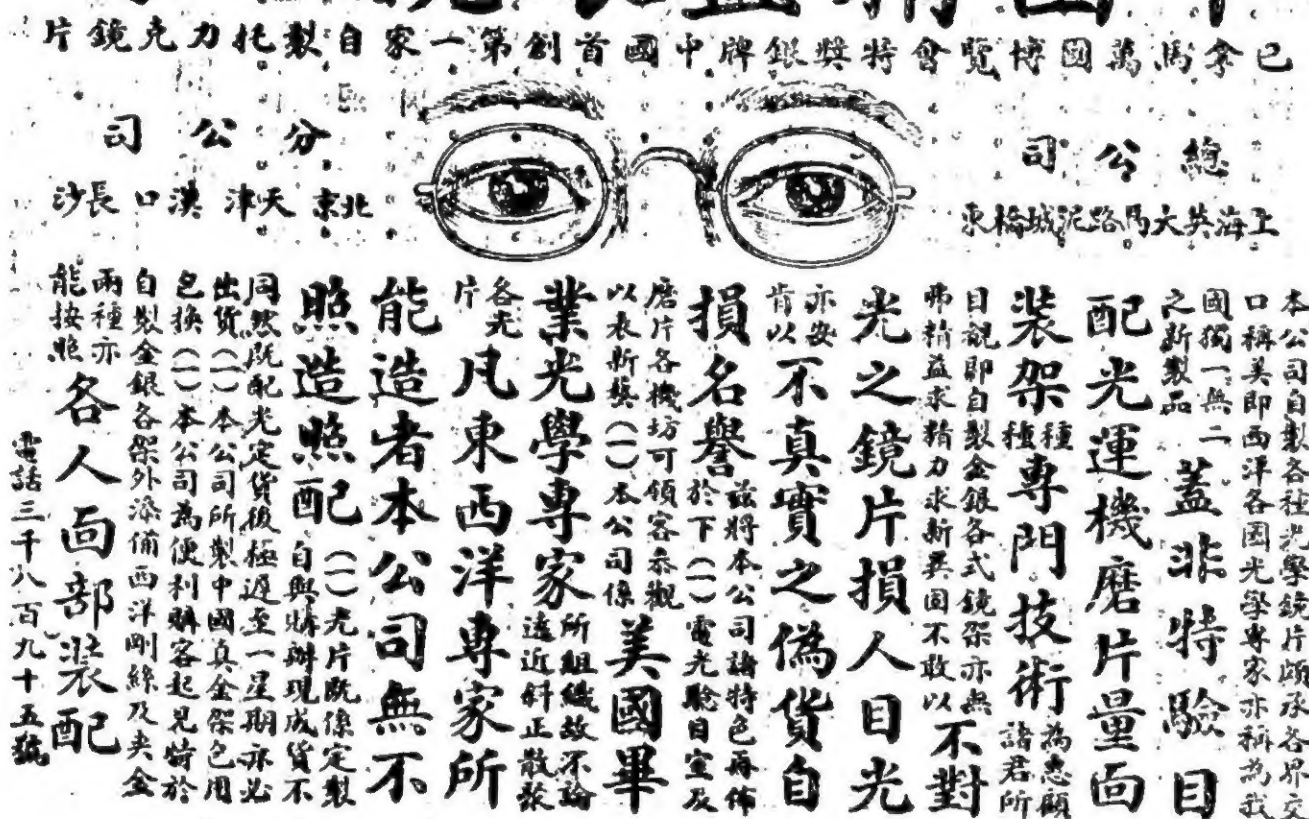 已拿馬萬國博覽會特獎銀牌中國首創第一家自製托力克鏡片
總公司
上海英大馬路泥城橋東
分公司
北京 天津 漢口 長沙
本公司自製各種光學鏡片頗承各界交
口稱美即西洋各國光學專家亦稱為我
國獨一無二
之新製品
蓋非特驗目
配光運機磨片量面
裝架種種專門技術
為惠顧
諸君所
目覩即自製金銀各式鏡架亦無
弗精益求精力求新異固不敢以
不對
光之鏡片損人目光
亦安
肯以
不真實之偽貨自
損名譽
茲將本公司諸特色再佈
於下(一)電光驗目室及
磨片各機坊可領客參觀
以表新藝(一)本公司係
美國畢
業光學專家
所組織故不論
遠近斜正散發
各光
片
凡東西洋專家所
能造者本公司無不
照造照配
(一)光片既係定製
自與購辦現成貨不
同然既配光定貨後極遲至一星期亦必
出貨(一)本公司所製中國真金架包用
包換(一)本公司為便利購客起見特於
自製金銀各架外添備西洋剛絲及夾金
兩種亦
能按照
各人面部裝配
電話三千八百九十五號